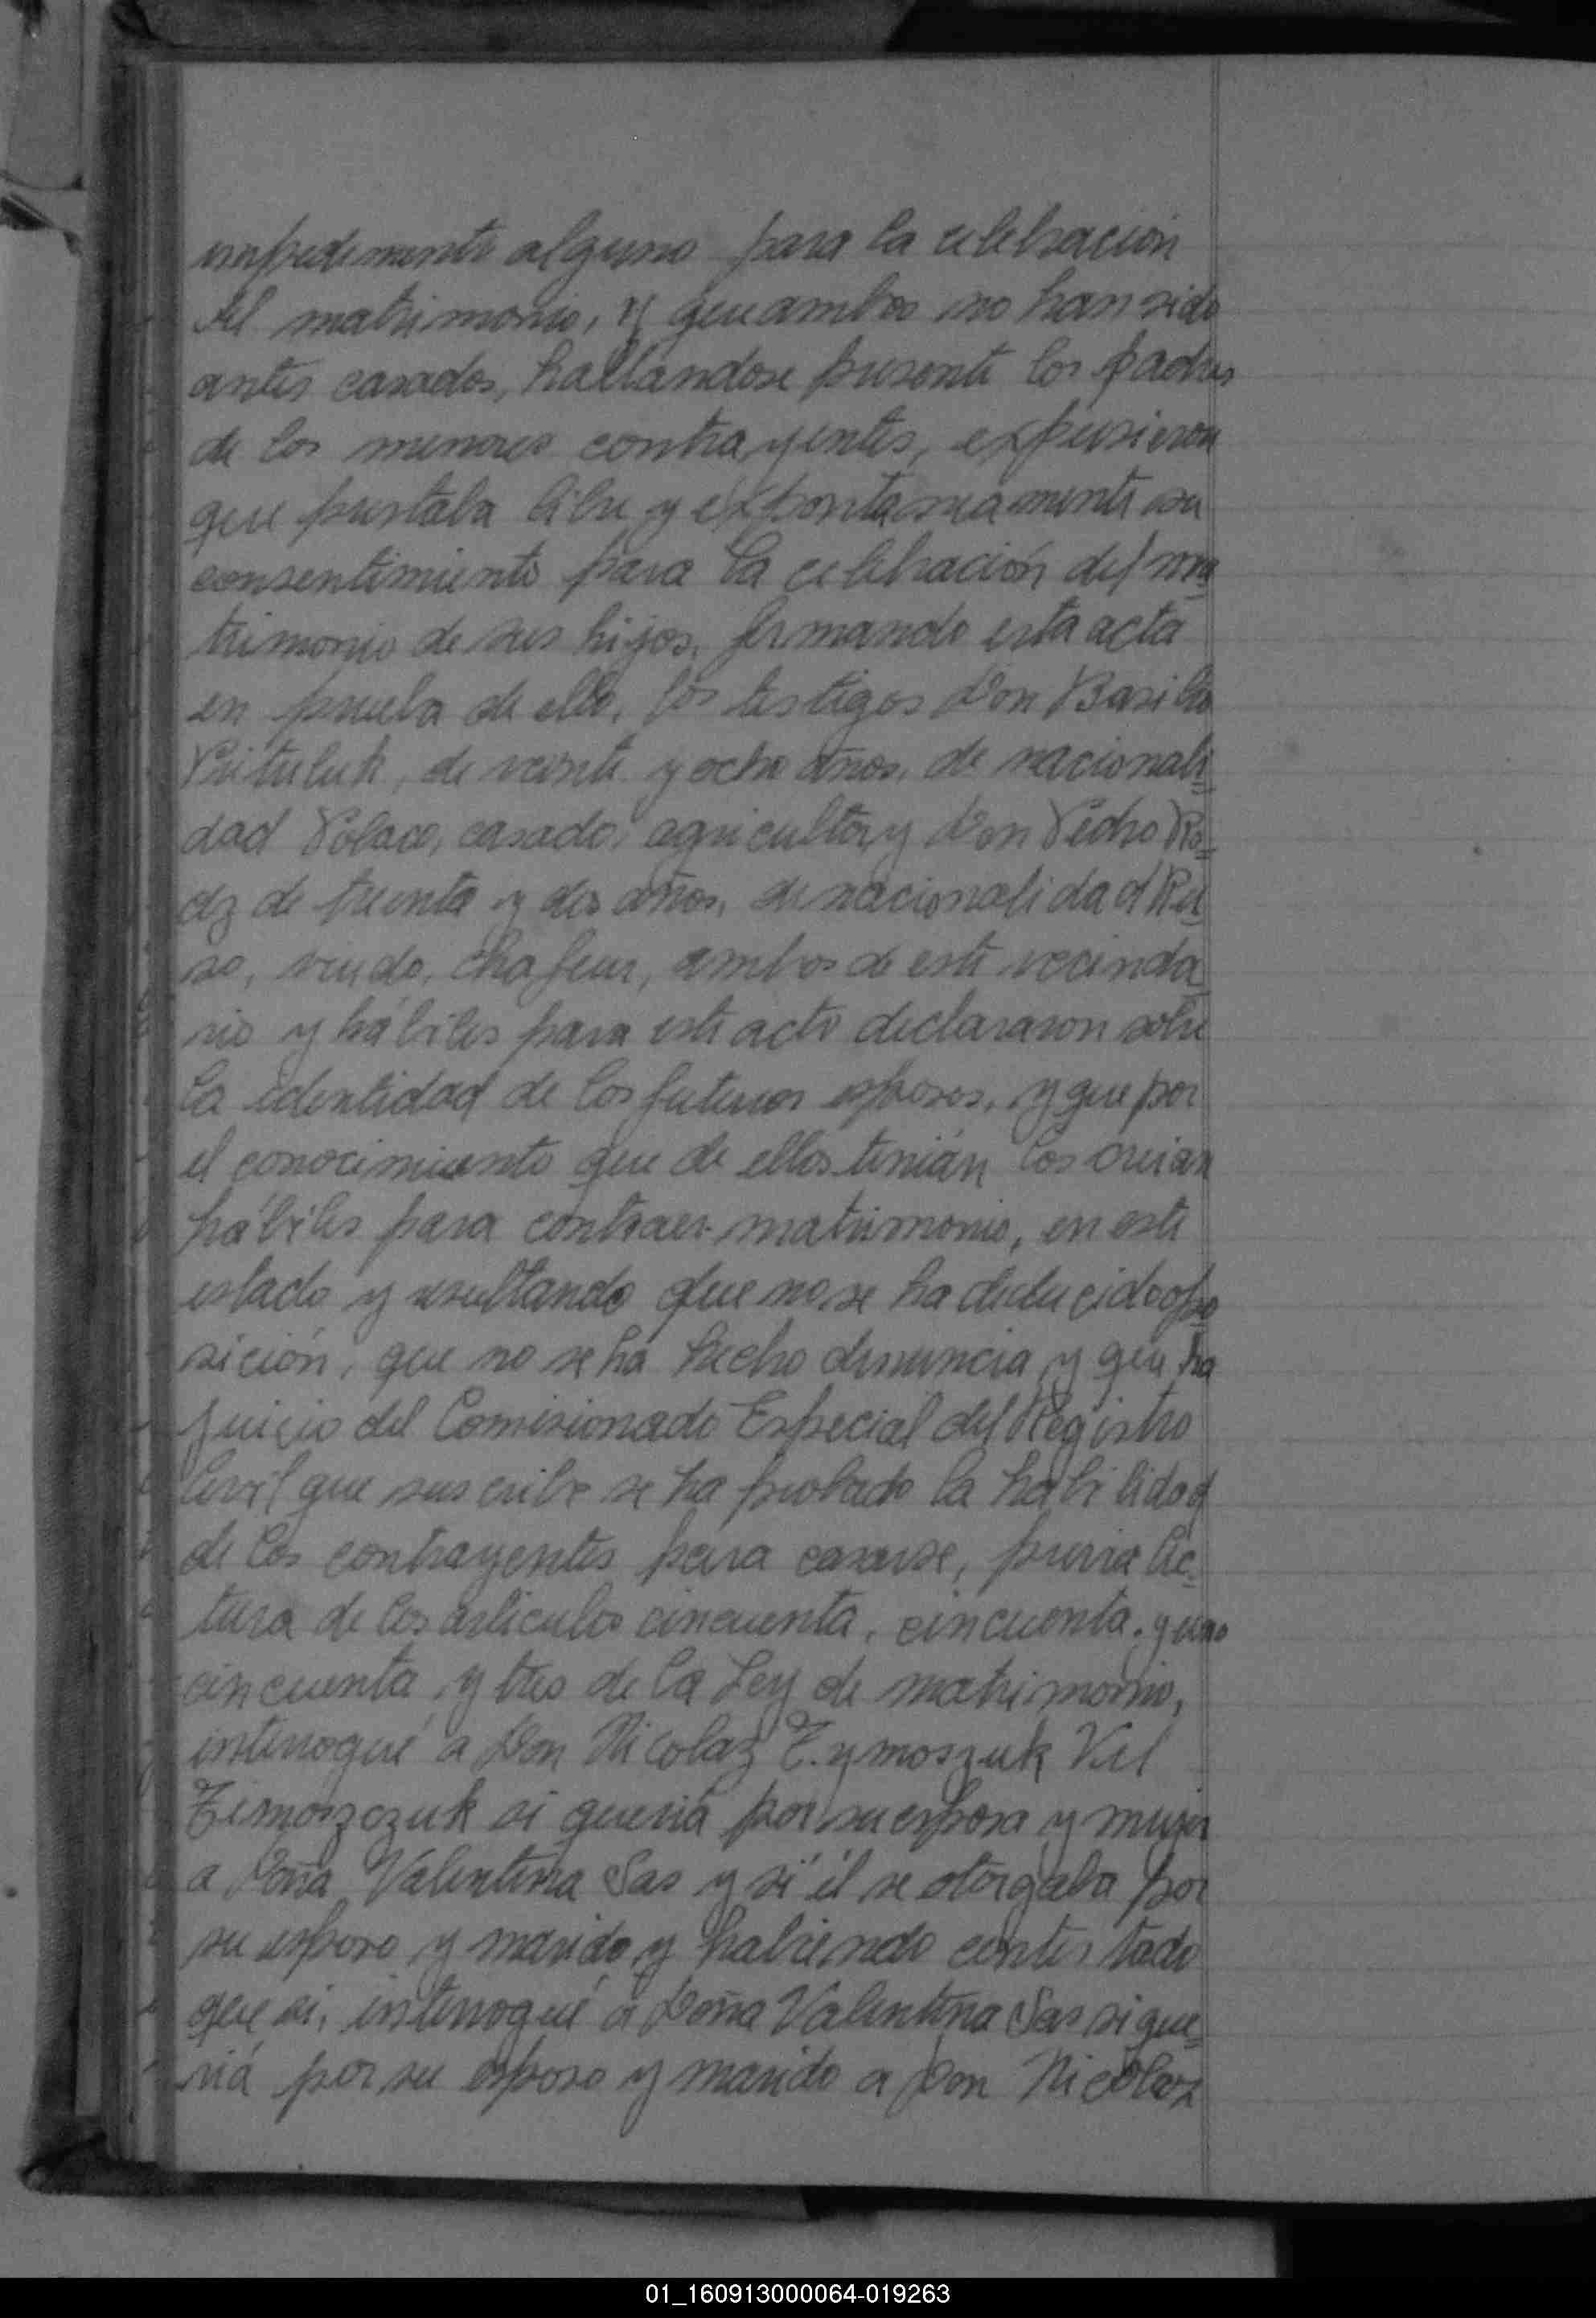 impedimento alguno para la celebración
del matrimonio, y que ambos no han sido
antes casados, hallandose presente los padres
de los menores contrayentes, expusieron
que prestaba libre y expontaneamente su
consentimiento para la celebración del ma
trimonio de sus hijos, firmando esta acta
en prueba de ello, los testigos Don Basilio
Prituluk, de veinte y ocho años, de nacionali
dad Polaco, casado, agricultor y Don Pedro
de treinta y dos años, de nacionalidad Ru
so, viudo, chafeur, ambos de este vecinda
rio y hábiles para este acto declararon sobre
la identidad de los futuros esposos, y que por
el conocimiento que de ellos tenián los creian
hábiles para contraer matrimonio, en este
estado y resultando que no se ha deducido opo
sición, que no se há hecho denuncia y que ha
juicio del Comisionado Especial del Registro
Civil que suscribe se ha probado la habilidad
de los contrayentes para casarse, previa lec-
tura de los articulos cincuenta, cincuenta y uno
cincuenta y tres de la Ley de matrimonio,
interrogué a Don Nicolaz Tymoszuk Vel
Timoszczuk si queriá por su esposa y mujer
a Doña Valentina Sas y si él se otorgaba por
su esposo y marido y habiendo contestado
que si, interrogué a Doña Valentina Sas si que-
riá por su esposo y marido a Don Nicolaz
01_160913000064-019263